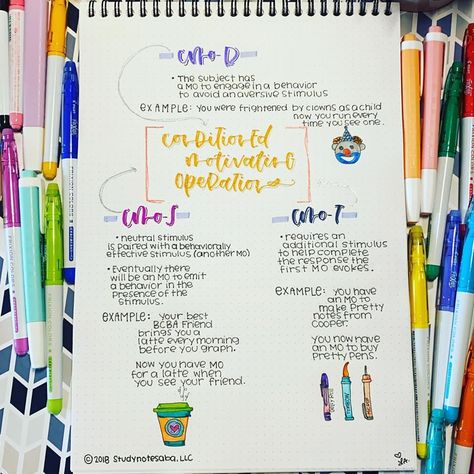 CMO-R
• The subject has
a MO to engage in a behavior
to avoid an aversive stimulus
EXAMPLE: you were frightened by clowns as a child
now you run every
time you see one.
CONDITIONED
MOTIVATING
OPERATION
CMO-S
• neutral stimulus
is paired with a behaviorally
effective stimulus (another MO)
• Eventually there
will be an MO to emit
a behavior in the
presence of the
stimulus.
EXAMPLE: your best
BCBA Friend
brings you a
latte every morning
before you graph.
Now you have MO
for a latte when
you see your friend.
CMO-T
• requires an
additional stimulus
to help complete
the response the
first MO evokes.
EXAMPLE: you have
an MO to
make Pretty
notes from
Cooper.
You now have
an MO to buy
Pretty pens.
© 2018 Studynotesaba, LLC